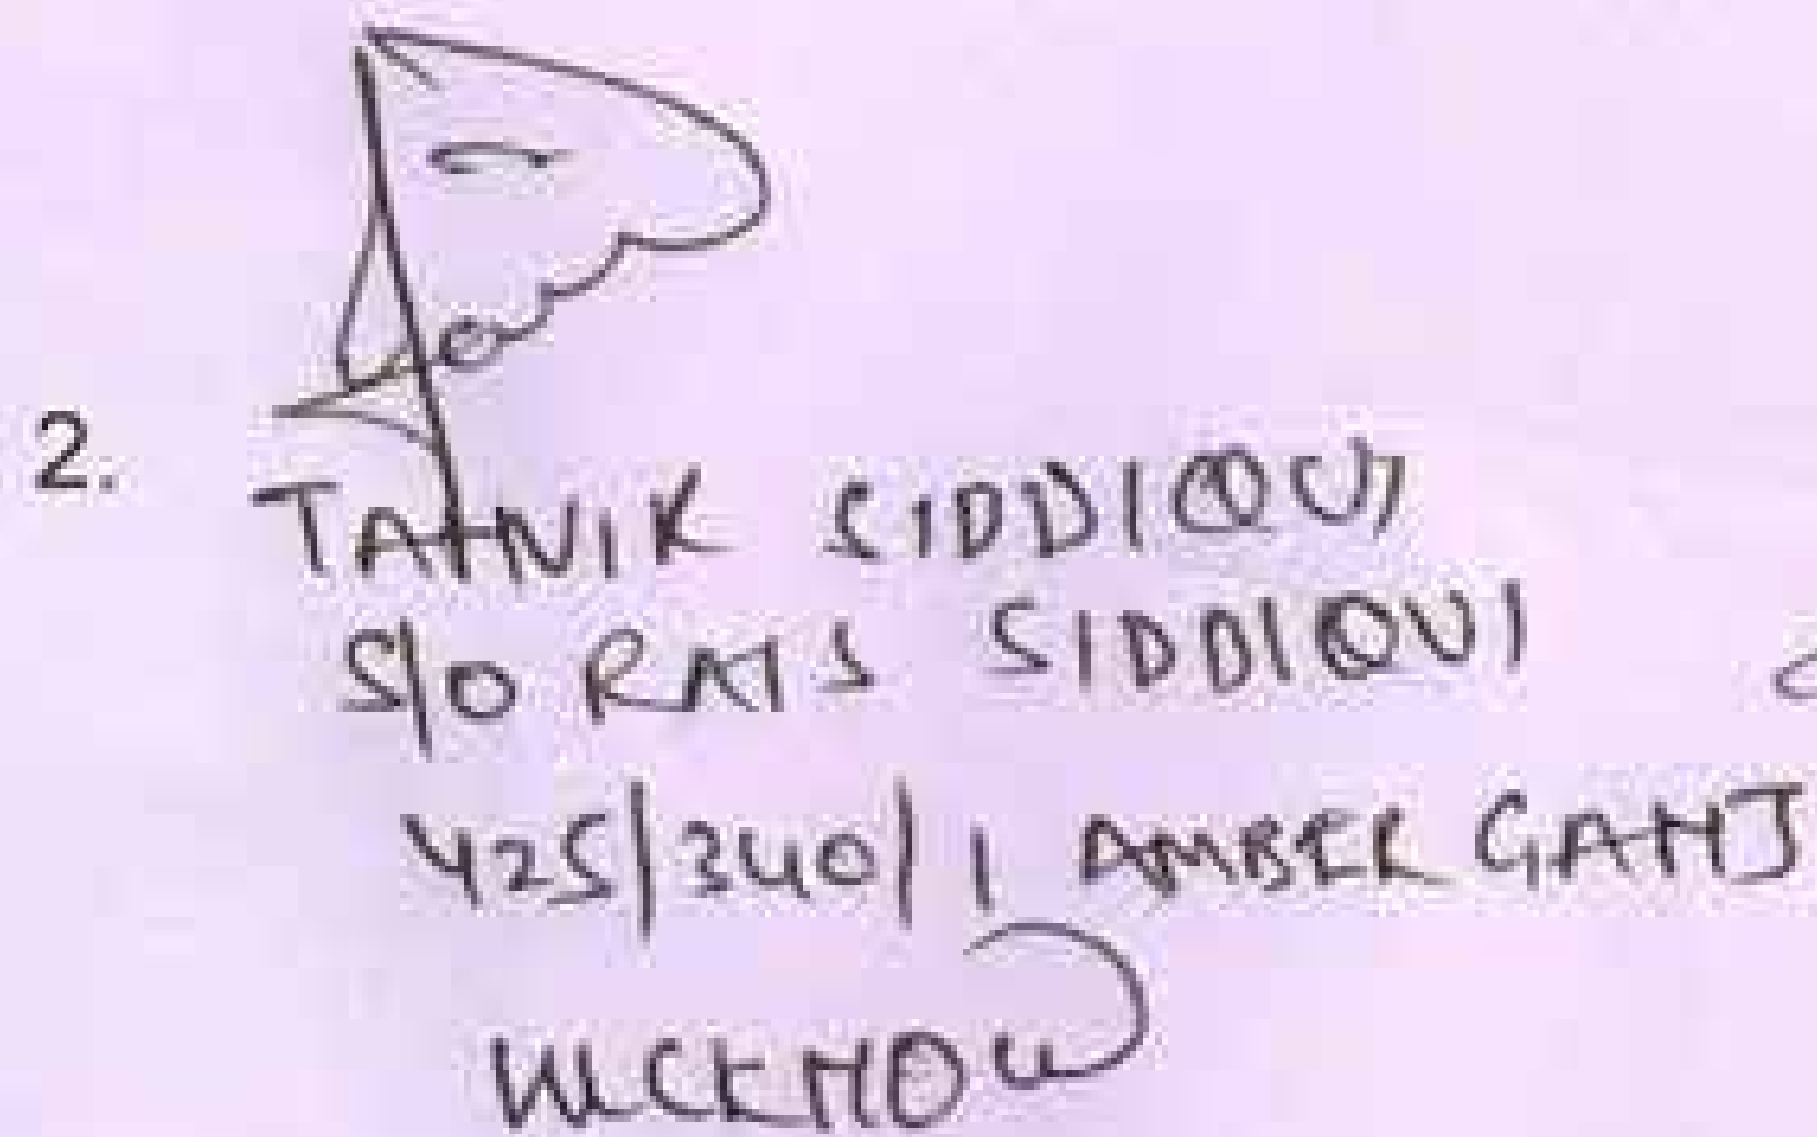 2.
TAHNIK SIDDIQUI
S/O RAIS SIDDIQUI
425/340/1 AMBER GANJ
LUCKNOW